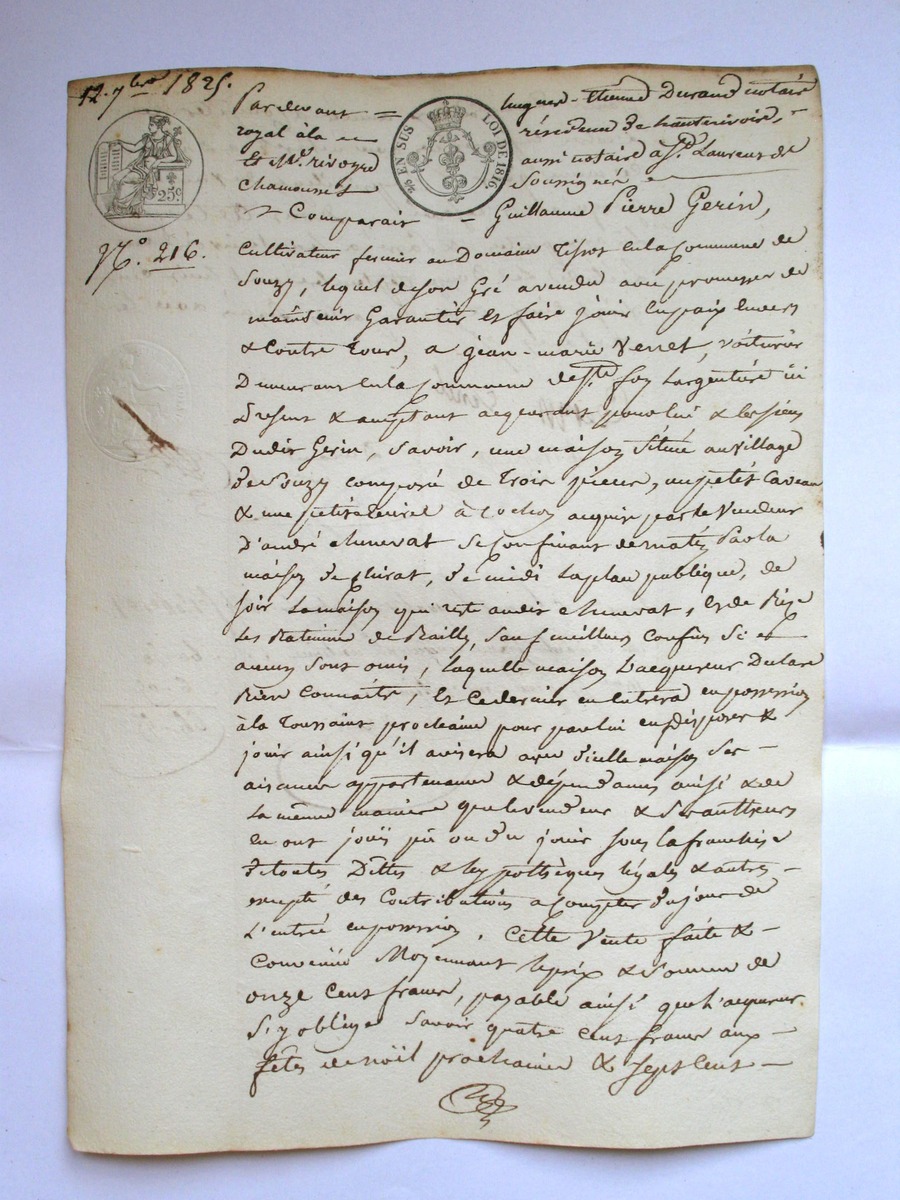 12. 7bre 1825.
Pardevant = hugues-étienne Durand notaire
royal à la résidence de hauterivoire,
& Me. rivoyre aussi notaire à St. Laurent de
Chamousset Soussignés
EN SUS LOI DE 1816.
25c
& Comparait - Guillaume Pierre Gerin,
No. 216.
Cultivateur fermier au Domaine Tissot en la Commune de
Souzy, lequel de son Gré a vendu avec promesse de
maintenir Garantir et faire jouir en paix envers
& Contre tous, a jean-marie Verret, voiturier
Demeurant en la Commune de Ste foy Largentière ici
présent & acceptant acquerant pour lui & les siens
Dudit Gerin, Savoir, une maison située au village
de Souzy composé de trois pièces, un petit Caveau
& une petite à cochon acquise par le Vendeur
D'andré se confinant de matin par la
maison de , de midi la place publique, de
soir la maison qui reste audit , & de Bize
les Batimens de Bailly, sauf meilleurs confins si
aucuns sont omis, laquelle maison l'acquereur Declare
Bien Connaitre, Et ce dernier en entrera en possession
à la Toussaint prochaine pour par lui en disposer &
jouir ainsi qu'il avisera avec d'icelle maison ses -
aisances appartenances & dépendances ainsi & de
la même manière que le vendeur & ses autheurs
en ont jouï pû ou dû jouir sous la franchise
de toutes Dettes & hypothèques légales & autres -
excepté des Contributions a Compter du jour de
L'entrée en possession. Cette Vente faite &
Convenüe Moyennant le prix & Somme de
onze Cent francs, payable ainsi que l'acquereur
s'y oblige Savoir quatre Cent francs aux -
fêtes de noël prochaines & Sept Cent -